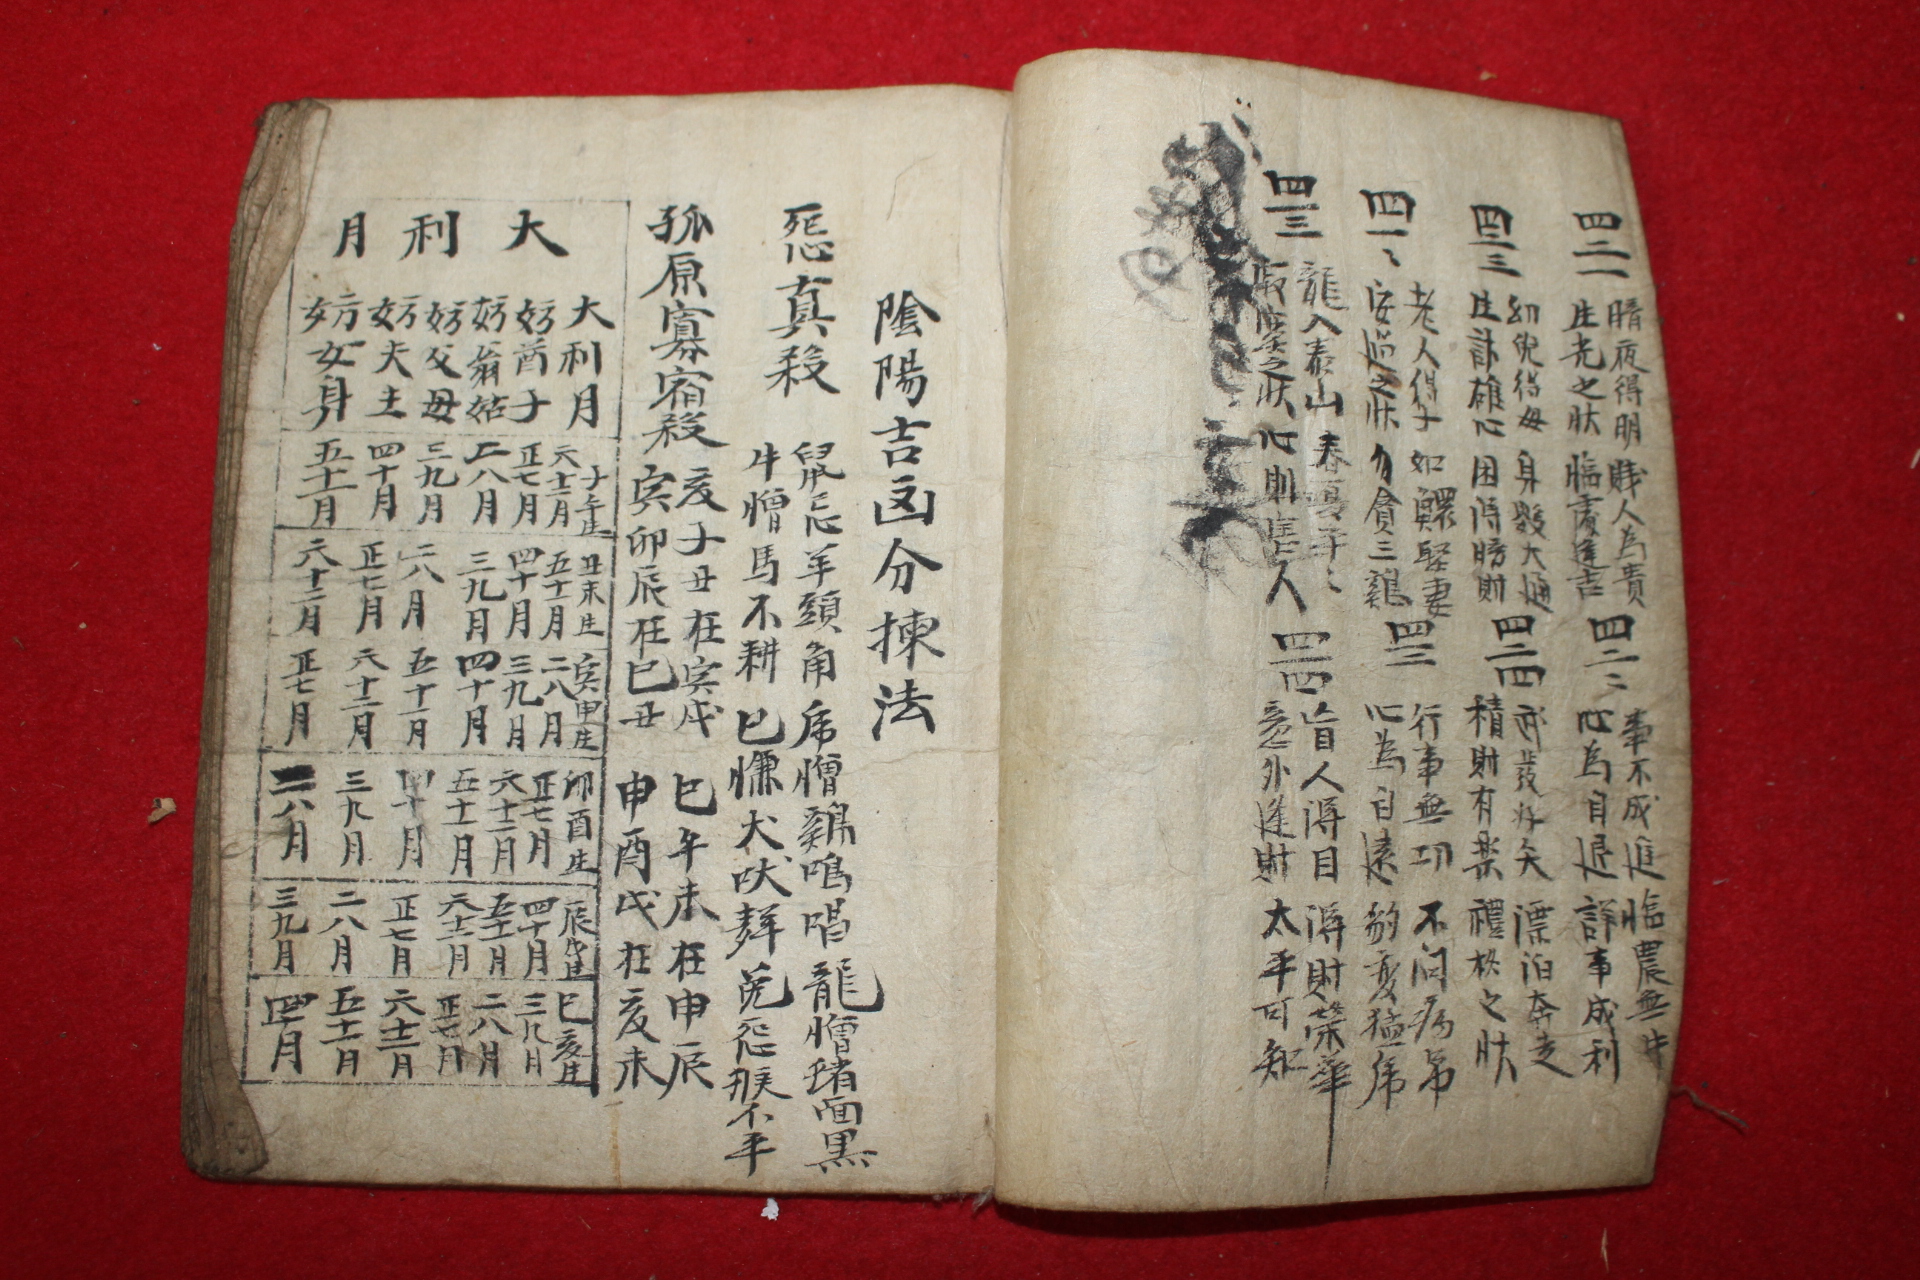 四二一
暗夜得明 賤人為貴
生光之狀 臨處逢吉
四二二
事不成進 臨農無牛
心為自退 詳事成利
四二三
幼兒得母 身數大通
生計雄心 困得勝財
四二四
武發好矢 漂泊奔走
積財有楽 禮格之狀
四一二
老人得子 如鰥娶妻
安過之狀 勿貪三鷄
四三
行事無功 不问病弔
心為自遠 豹変猛席
四三
龍入泰山 春夏子
之狀 心則害人
四二四
盲人得目 得財榮華
意外逢財 太平可知
陰陽吉凶分揀法
怨真殺
鼠忌羊頭角 席憎鷄鳴唱 龍憎猪面黒
牛憎馬不耕 巳慊犬吠聲 兎怨猴不平
孤原寡宿殺
亥子丑在寅戌 巳午未在申辰
寅卯辰在巳丑 申酉戌在亥未
大利月
大利月 六十二月 五十一月 二八月 正七月 四十月 三九月
妨酋子 正七月 四十月 三九月 六十二月 五十一月 二八月
妨翁姑 二八月 三九月 四十月 五十一月 六十二月 正七月
妨父母 三九月 二八月 五十一月 四十月 正七月 六十二月
妨夫主 四十月 正七月 六十二月 三九月 二八月 五十一月
妨女身 五十一月 六十二月 正七月 二八月 三九月 四十月
子午生 丑未生 寅申生 卯酉生 辰戌生 巳亥生